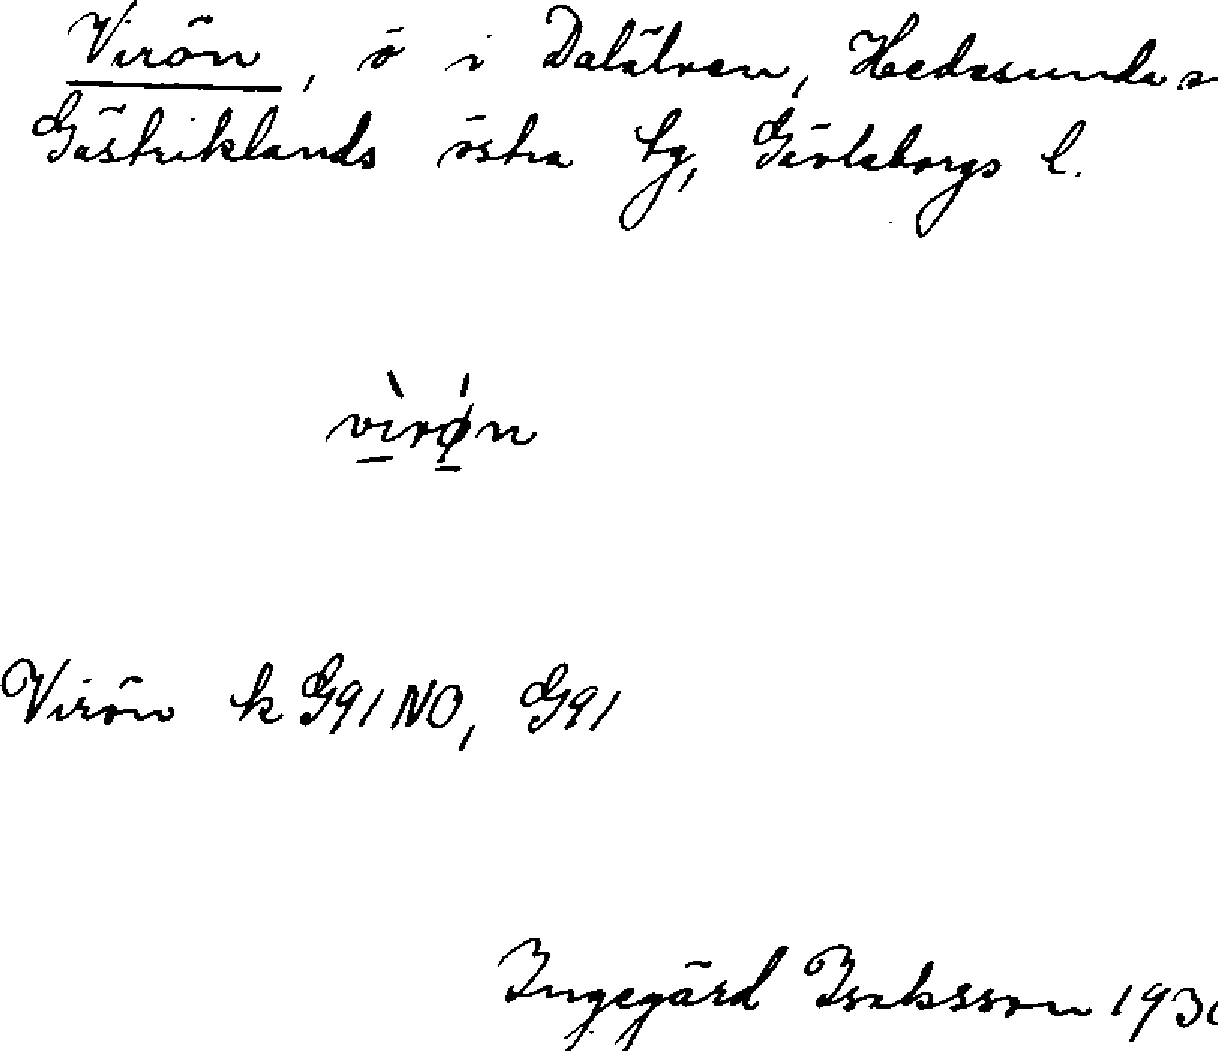 Virön, ö i Dalälven, Hedesunda s
Gästriklands östra tg, Gävleborgs l.
vìrǿn
Virön k G91 NO, G91
Ingegärd Isaksson 193